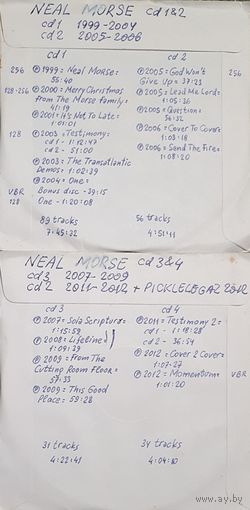 NEAL MORSE cd 1&2
cd 1 1999-2004
cd 2 2005-2006
cd 1
256 Ⓟ 1999 = Neal Morse:
55:40
128-256 Ⓟ 2000 = Merry Christmas
From The Morse Family:
41:19
Ⓟ 2001 = It's Not To Late:
1:01:01
128 Ⓟ 2003 = Testimony:
cd1 - 1:12:47
cd2 - 51:00
Ⓟ 2003 = The Transatlantic
Demos: 1:02:39
Ⓟ 2004 = One:
VBR Bonus disc - 39:15
128 One - 1:20:08
89 tracks
7:45:32
cd 2
Ⓟ 2005 = God Won't 256
Give Up: 37:23
Ⓟ 2005 = Lead Me Lord:
1:05:36
Ⓟ 2005 = Question:
56:32
Ⓟ 2006 = Cover To Cover:
1:03:18
Ⓟ 2006 = Send The Fire:
1:08:20
56 tracks
4:51:11
NEAL MORSE cd 3&4
cd 3 2007-2009
cd 2 2011-2012 + PICKLELEGAZ 2011
cd 3
Ⓟ 2007 = Sola Scriptura:
1:15:59
Ⓟ 2008 = Lifeline:
1:09:39
Ⓟ 2009 = From The
Cutting Room Floor:
57:33
Ⓟ 2009 = This Good
Place: 59:28
31 tracks
4:22:41
cd 4
Ⓟ 2011 = Testimony 2 =
cd 1 - 1:18:28
cd 2 - 36:54
Ⓟ 2012 = Cover 2 Cover =
1:07:27
Ⓟ 2012 = Momentum = VBR
1:01:20
34 tracks
4:04:10
ay.by